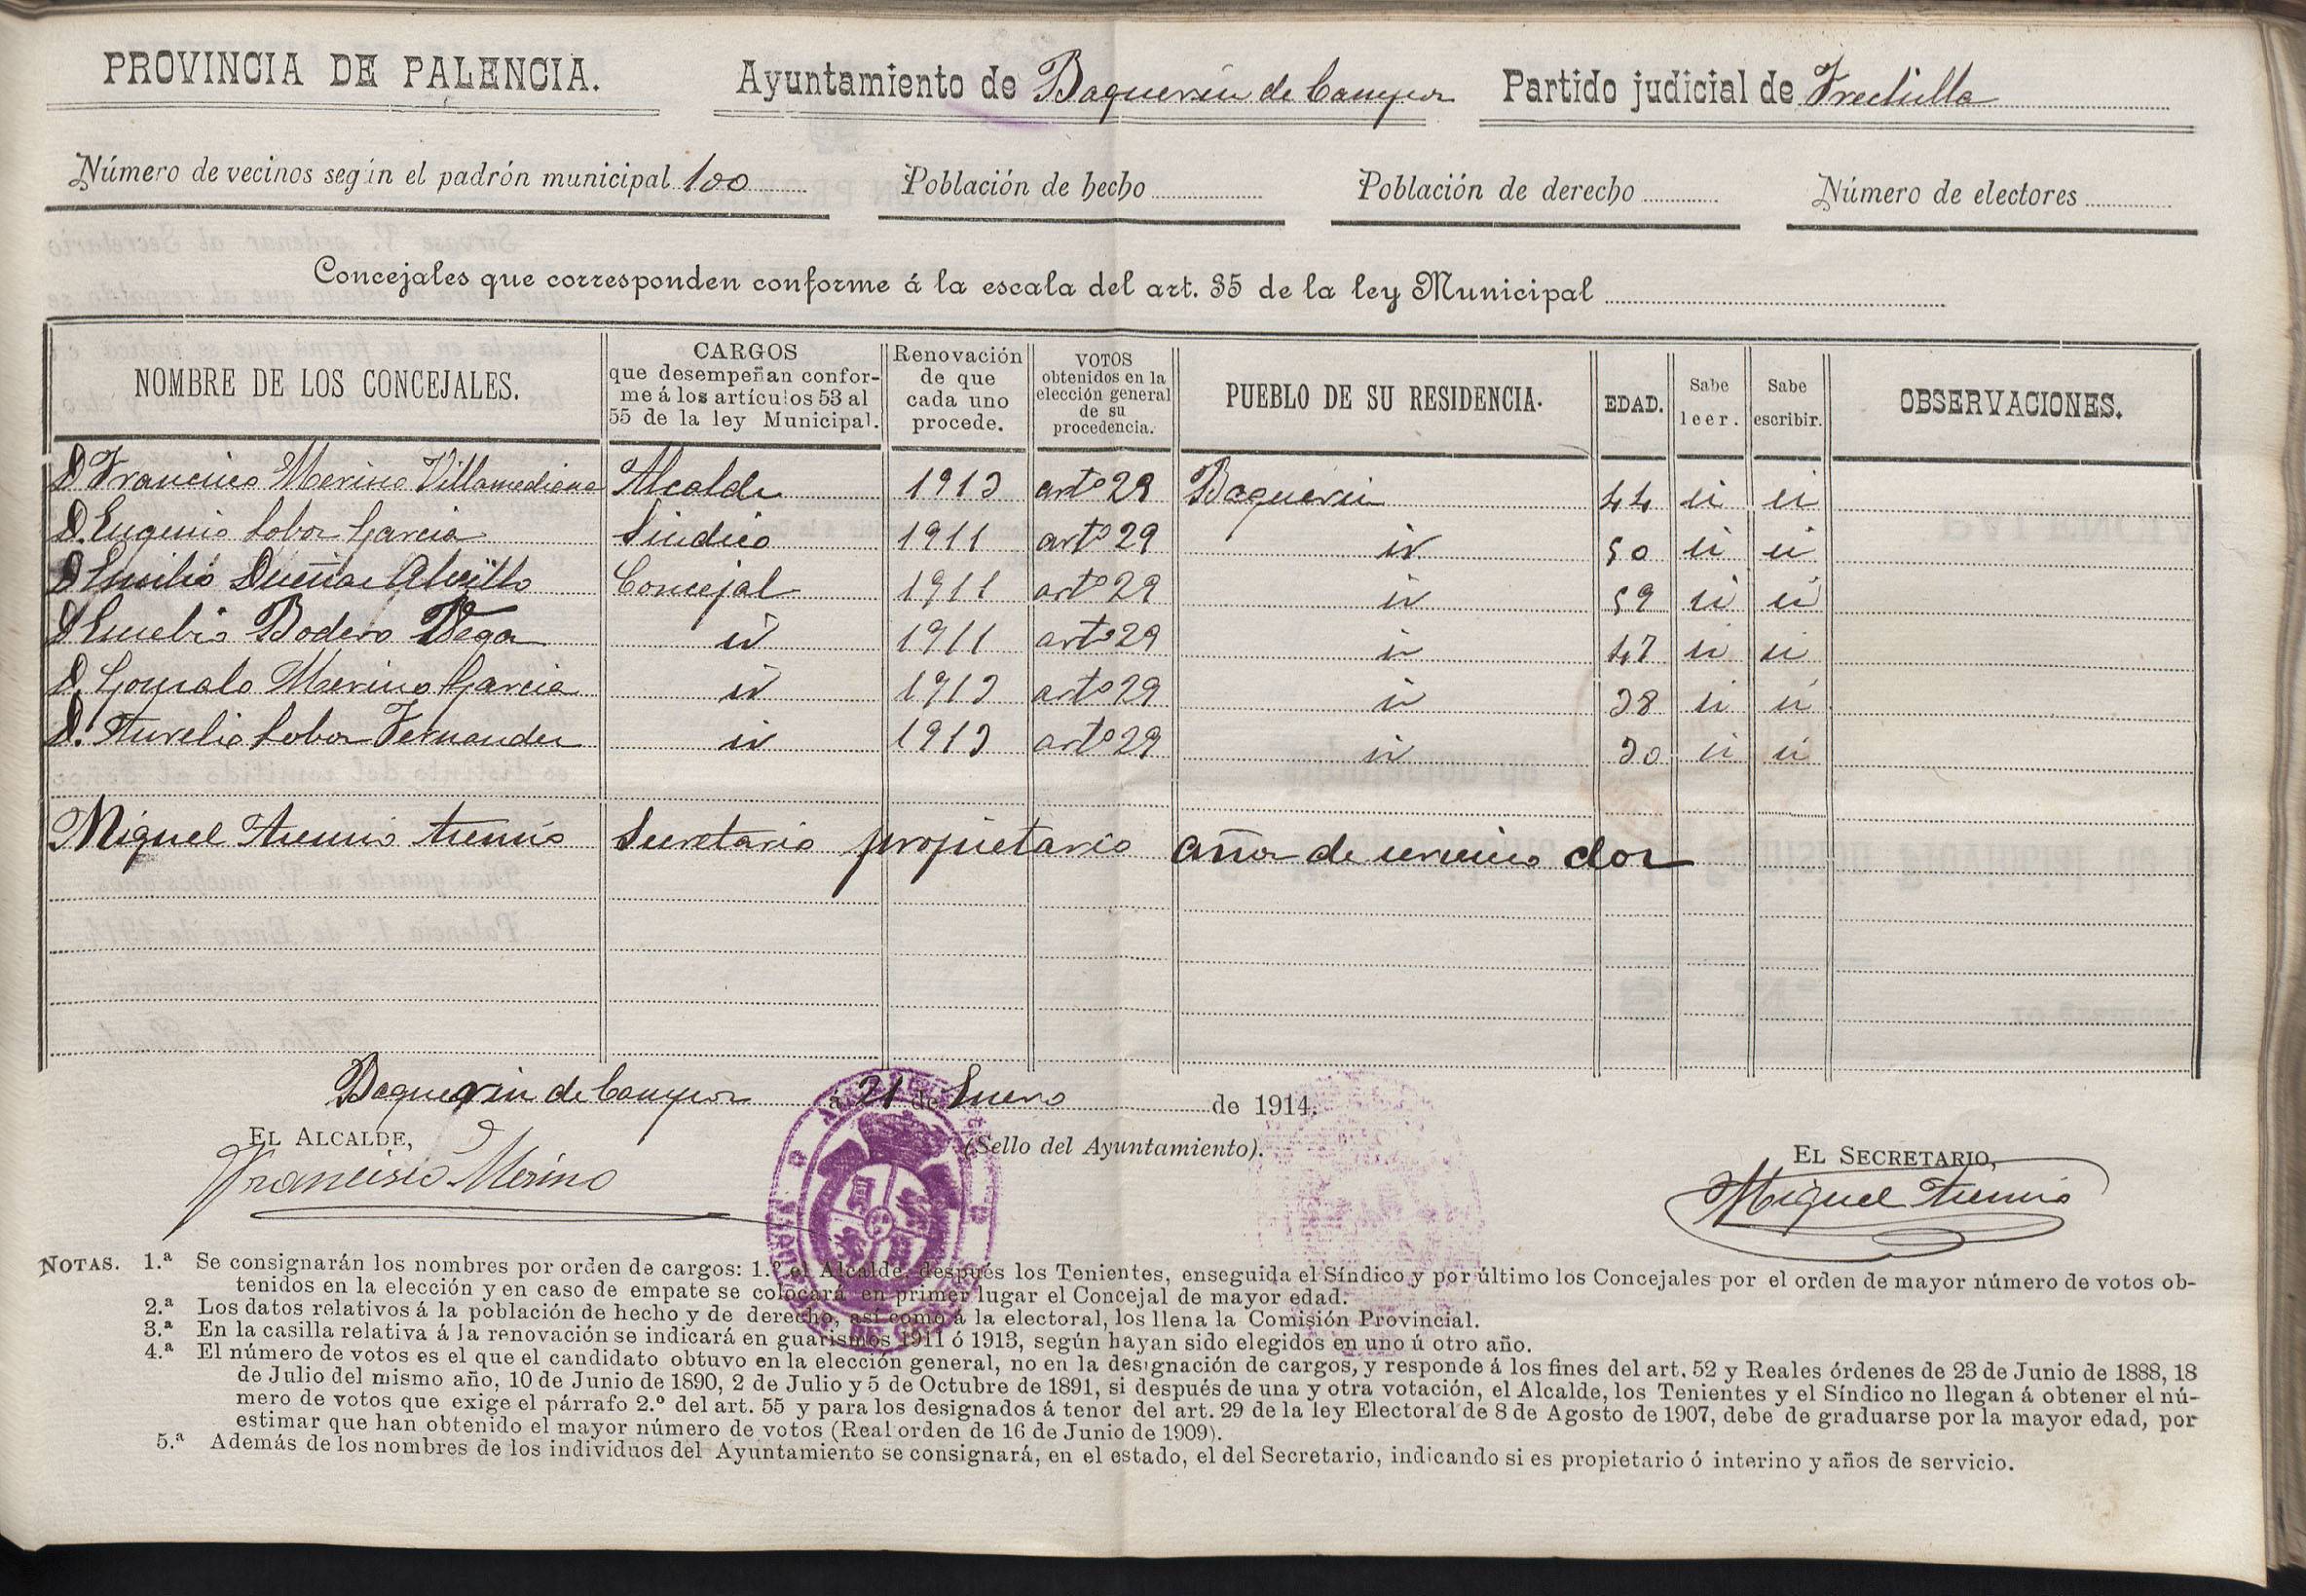 PROVINCIA DE PALENCIA. Ayuntamiento de Baquerin de Campos Partido judicial de Frechilla
Número de vecinos según el padrón municipal 100 Población de hecho Población de derecho Número de electores
Concejales que corresponden conforme á la escala del art. 35 de la ley Municipal
NOMBRE DE LOS CONCEJALES. CARGOS que desempeñan conforme á los artículos 53 al 55 de la ley Municipal. Renovación de que cada uno procede. VOTOS obtenidos en la elección general de su procedencia. PUEBLO DE SU RESIDENCIA. EDAD. Sabe leer. Sabe escribir. OBSERVACIONES.
D Francisco Merino Villamediana Alcalde 1913 artº 29 Baquerin 44 si si
D. Eugenio Cobos Garcia Sindico 1911 artº 29 id 50 si si
D Emilio Dueñas Concejal 1911 artº 29 id 59 si si
D Eusebio Bodero Vega id 1911 artº 29 id 47 si si
D. Gonzalo Merino Garcia id 1913 artº 29 id 38 si si
D. Aurelio Cobos Fernandez id 1913 artº 29 id 30 si si
Miguel Secretario propietario años de servicio dos
Baquerin de Campos á 21 de Enero de 1914.
EL ALCALDE, (Sello del Ayuntamiento). EL SECRETARIO,
Francisco Merino Miguel
NOTAS. 1.ª Se consignarán los nombres por orden de cargos: 1.º el Alcalde, después los Tenientes, enseguida el Síndico y por último los Concejales por el orden de mayor número de votos ob-
tenidos en la elección y en caso de empate se colocará en primer lugar el Concejal de mayor edad.
2.ª Los datos relativos á la población de hecho y de derecho, así como á la electoral, los llena la Comisión Provincial.
3.ª En la casilla relativa á la renovación se indicará en guarismos 1911 ó 1913, según hayan sido elegidos en uno ú otro año.
4.ª El número de votos es el que el candidato obtuvo en la elección general, no en la designación de cargos, y responde á los fines del art. 52 y Reales órdenes de 23 de Junio de 1888, 18
de Julio del mismo año, 10 de Junio de 1890, 2 de Julio y 5 de Octubre de 1891, si después de una y otra votación, el Alcalde, los Tenientes y el Síndico no llegan á obtener el nú-
mero de votos que exige el párrafo 2.º del art. 55 y para los designados á tenor del art. 29 de la ley Electoral de 8 de Agosto de 1907, debe de graduarse por la mayor edad, por
estimar que han obtenido el mayor número de votos (Real orden de 16 de Junio de 1909).
5.ª Además de los nombres de los individuos del Ayuntamiento se consignará, en el estado, el del Secretario, indicando si es propietario ó interino y años de servicio.